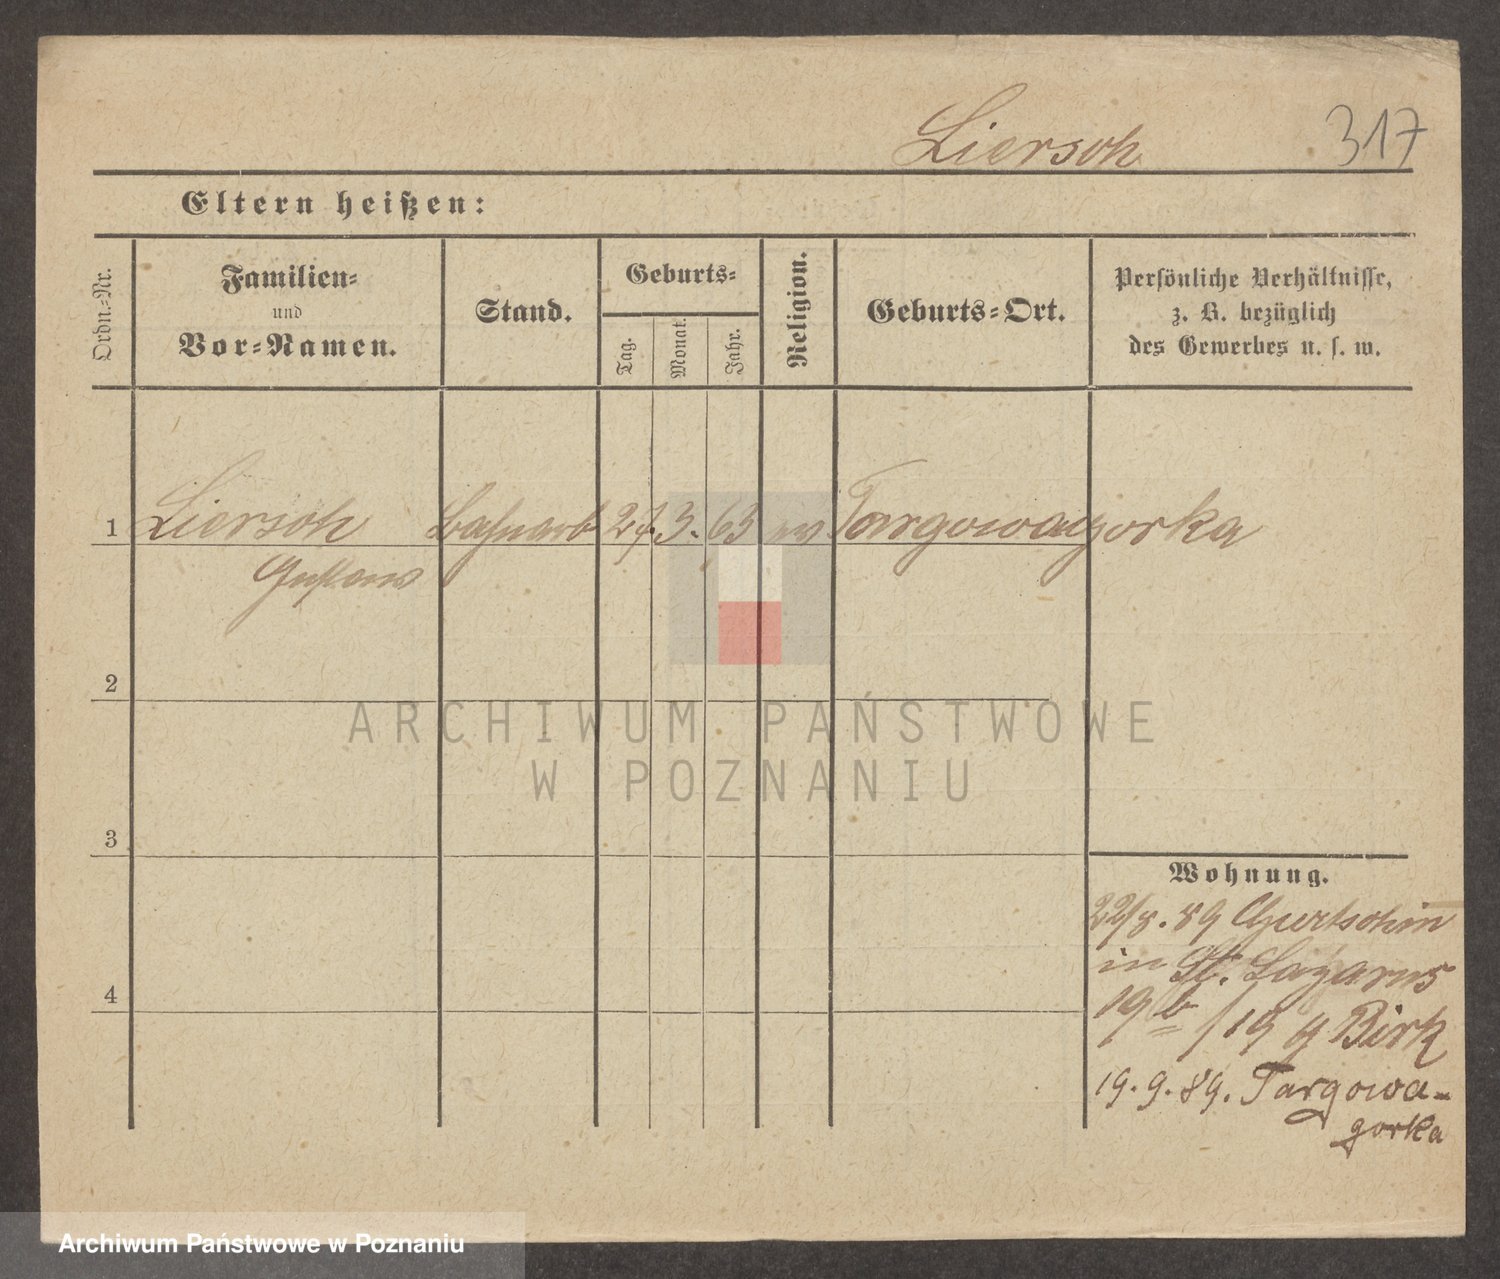 Liersch
317
Eltern heißen:
Ordn.-Nr.
Familien-
und
Vor-Namen.
Stand.
Geburts-
Tag.
Monat.
Jahr.
Religion.
Geburts-Ort.
Persönliche Verhältnisse,
z. B. bezüglich
des Gewerbes u. s. w.
1 Liersch Bahnarb 27. 3. 63 ev Targowagorka
Gustav
2
3
4
Wohnung.
22/8. 89 Gurtschin
in St. Lazarus
19 b / 19 9 Birk
19. 9. 89. Targowa-
gorka
ARCHIWUM PAŃSTWOWE
W POZNANIU
Archiwum Państwowe w Poznaniu